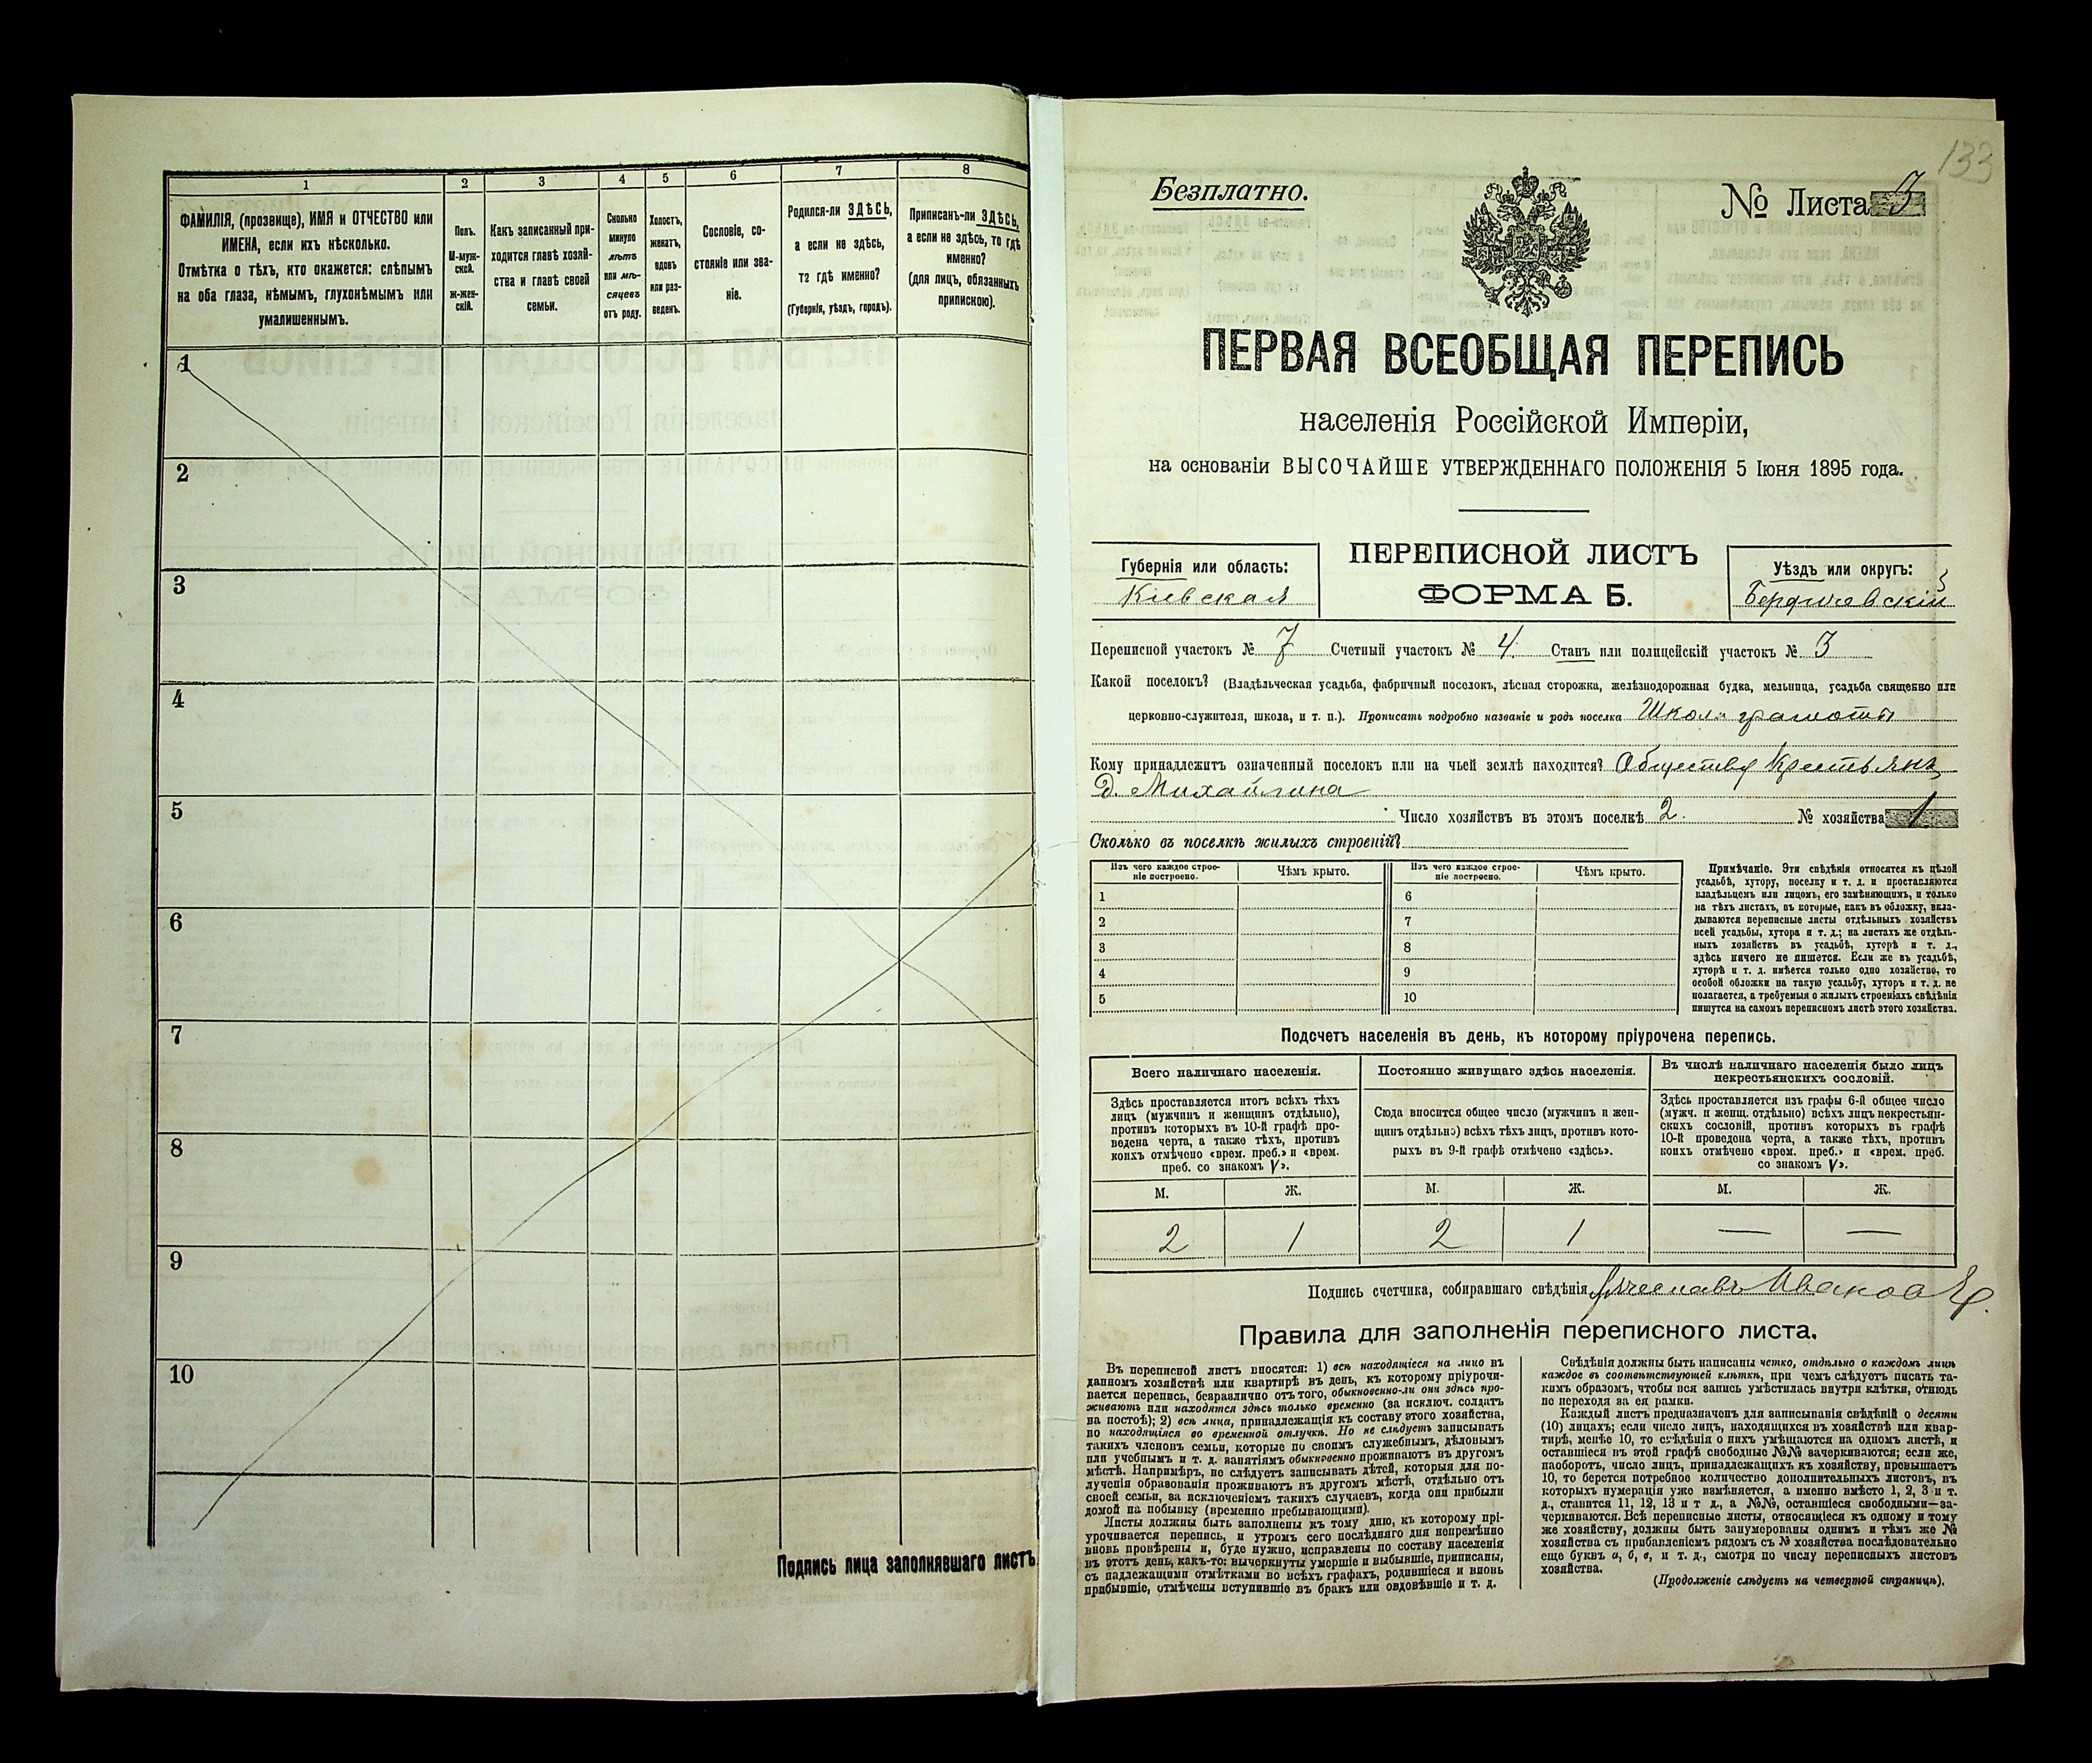 1 2 3 4 5 6 7 8
ФАМИЛІЯ, (прозвище), ИМЯ и ОТЧЕСТВО или
ИМЕНА, если ихъ нѣсколько.
Отмѣтка о тѣхъ, кто окажется: слѣпымъ
на оба глаза, нѣмымъ, глухонѣмымъ или
умалишеннымъ.
Полъ.
М-муж-
ской.
Ж-жен-
скій.
Какъ записанный при-
ходится главѣ хозяй-
ства и главѣ своей
семьи.
Сколько
минуло
лѣтъ
или мѣ-
сяцевъ
отъ роду.
Холостъ,
женатъ,
вдовъ
или раз-
веденъ.
Сословіе, со-
стояніе или зва-
ніе.
Родился-ли ЗДѢСЬ,
а если не здѣсь,
то гдѣ именно?
(Губернія, уѣздъ, городъ).
Приписанъ-ли ЗДѢСЬ,
а если не здѣсь, то гдѣ
именно?
(для лицъ, обязанныхъ
припискою).
1
2
3
4
5
6
7
8
9
10
Подпись лица заполнявшаго листъ
133
Безплатно.
№ Листа 3
ПЕРВАЯ ВСЕОБЩАЯ ПЕРЕПИСЬ
населенія Россійской Имперіи,
на основаніи ВЫСОЧАЙШЕ УТВЕРЖДЕННАГО ПОЛОЖЕНІЯ 5 Іюня 1895 года.
Губернія или область:
Кіевская
ПЕРЕПИСНОЙ ЛИСТЪ
ФОРМА Б.
Уѣздъ или округъ:
Бердичевскій
Переписной участокъ № 7 Счетный участокъ № 4. Станъ или полицейскій участокъ № 3
Какой поселокъ? (Владѣльческая усадьба, фабричный поселокъ, лѣсная сторожка, желѣзнодорожная будка, мельница, усадьба священно или
церковно-служителя, школа, и т. п.). Прописать подробно названіе и родъ поселка грамоты
Кому принадлежитъ означенный поселокъ или на чьей землѣ находится? Обществу Крестьянъ
д. Михайлина
Число хозяйствъ въ этомъ поселкѣ 2. № хозяйства 1
Сколько въ поселкѣ жилыхъ строеній?
Изъ чего каждое строе-
ніе построено.
Чѣмъ крыто.
Изъ чего каждое строе-
ніе построено.
Чѣмъ крыто.
1 6
2 7
3 8
4 9
5 10
Примѣчаніе. Эти свѣдѣнія относятся къ цѣлой
усадьбѣ, хутору, поселку и т. д. и проставляются
владѣльцемъ или лицомъ, его замѣняющимъ, и только
на тѣхъ листахъ, въ которые, какъ въ обложку, вкла-
дываются переписные листы отдѣльныхъ хозяйствъ
всей усадьбы, хутора и т. д.; на листахъ же отдѣль-
ныхъ хозяйствъ въ усадьбѣ, хуторѣ и т. д.,
здѣсь ничего не пишется. Если же въ усадьбѣ,
хуторѣ и т. д. имѣется только одно хозяйство, то
особой обложки на такую усадьбу, хуторъ и т. д. не
полагается, а требуемыя о жилыхъ строеніяхъ свѣдѣнія
пишутся на самомъ переписномъ листѣ этого хозяйства.
Подсчетъ населенія въ день, къ которому пріурочена перепись.
Всего наличнаго населенія.
Здѣсь проставляется итогъ всѣхъ тѣхъ
лицъ (мужчинъ и женщинъ отдѣльно),
противъ которыхъ въ 10-й графѣ про-
ведена черта, а также тѣхъ, противъ
коихъ отмѣчено «врем. преб.» и «врем.
преб. со знакомъ V».
Постоянно живущаго здѣсь населенія.
Сюда вносится общее число (мужчинъ и жен-
щинъ отдѣльно) всѣхъ тѣхъ лицъ, противъ кото-
рыхъ въ 9-й графѣ отмѣчено «здѣсь».
Въ числѣ наличнаго населенія было лицъ
некрестьянскихъ сословій.
Здѣсь проставляется изъ графы 6-й общее число
(мужч. и женщ. отдѣльно) всѣхъ лицъ некрестьян-
скихъ сословій, противъ которыхъ въ графѣ
10-й проведена черта, а также тѣхъ, противъ
коихъ отмѣчено «врем. преб.» и «врем. преб.
со знакомъ V».
М. Ж. М. Ж. М. Ж.
2 1 2 1 — —
Подпись счетчика, собиравшаго свѣдѣнія
Правила для заполненія переписного листа.
Въ переписной листъ вносятся: 1) всѣ находящіеся на лицо въ
данномъ хозяйствѣ или квартирѣ въ день, къ которому пріурочи-
вается перепись, безразлично отъ того, обыкновенно-ли они здѣсь про-
живаютъ или находятся здѣсь только временно (за исключ. солдатъ
на постоѣ); 2) всѣ лица, принадлежащія къ составу этого хозяйства,
но находящіяся во временной отлучкѣ. Но не слѣдуетъ записывать
такихъ членовъ семьи, которые по своимъ служебнымъ, дѣловымъ
или учебнымъ и т. д. занятіямъ обыкновенно проживаютъ въ другомъ
мѣстѣ. Напримѣръ, не слѣдуетъ записывать дѣтей, которыя для по-
лученія образованія проживаютъ въ другомъ мѣстѣ, отдѣльно отъ
своей семьи, за исключеніемъ такихъ случаевъ, когда они прибыли
домой на побывку (временно пребывающими).
Листы должны быть заполнены къ тому дню, къ которому прі-
урочивается перепись, и утромъ сего послѣдняго дня непремѣнно
вновь провѣрены и, буде нужно, исправлены по составу населенія
въ этотъ день, какъ-то: вычеркнуты умершіе и выбывшіе, приписаны,
съ надлежащими отмѣтками во всѣхъ графахъ, родившіеся и вновь
прибывшіе, отмѣчены вступившіе въ бракъ или овдовѣвшіе и т. д.
Свѣдѣнія должны быть написаны четко, отдѣльно о каждомъ лицѣ
каждое въ соотвѣтствующей клѣткѣ, при чемъ слѣдуетъ писать та-
кимъ образомъ, чтобы вся запись умѣстилась внутри клѣтки, отнюдь
не переходя за ея рамки.
Каждый листъ предназначенъ для записыванія свѣдѣній о десяти
(10) лицахъ; если число лицъ, находящихся въ хозяйствѣ или квар-
тирѣ, менѣе 10, то свѣдѣнія о нихъ умѣщаются на одномъ листѣ, и
оставшіеся въ этой графѣ свободные №№ зачеркиваются; если же,
наоборотъ, число лицъ, принадлежащихъ къ хозяйству, превышаетъ
10, то берется потребное количество дополнительныхъ листовъ, въ
которыхъ нумерація уже измѣняется, а именно вмѣсто 1, 2, 3 и т.
д., ставится 11, 12, 13 и т д., а №№, оставшіеся свободными—за-
черкиваются. Всѣ переписные листы, относящіеся къ одному и тому
же хозяйству, должны быть занумерованы однимъ и тѣмъ же №
хозяйства съ прибавленіемъ рядомъ съ № хозяйства послѣдовательно
еще буквъ а, б, в, и т. д., смотря по числу переписныхъ листовъ
хозяйства.
(Продолженіе слѣдуетъ на четвертой страницѣ).